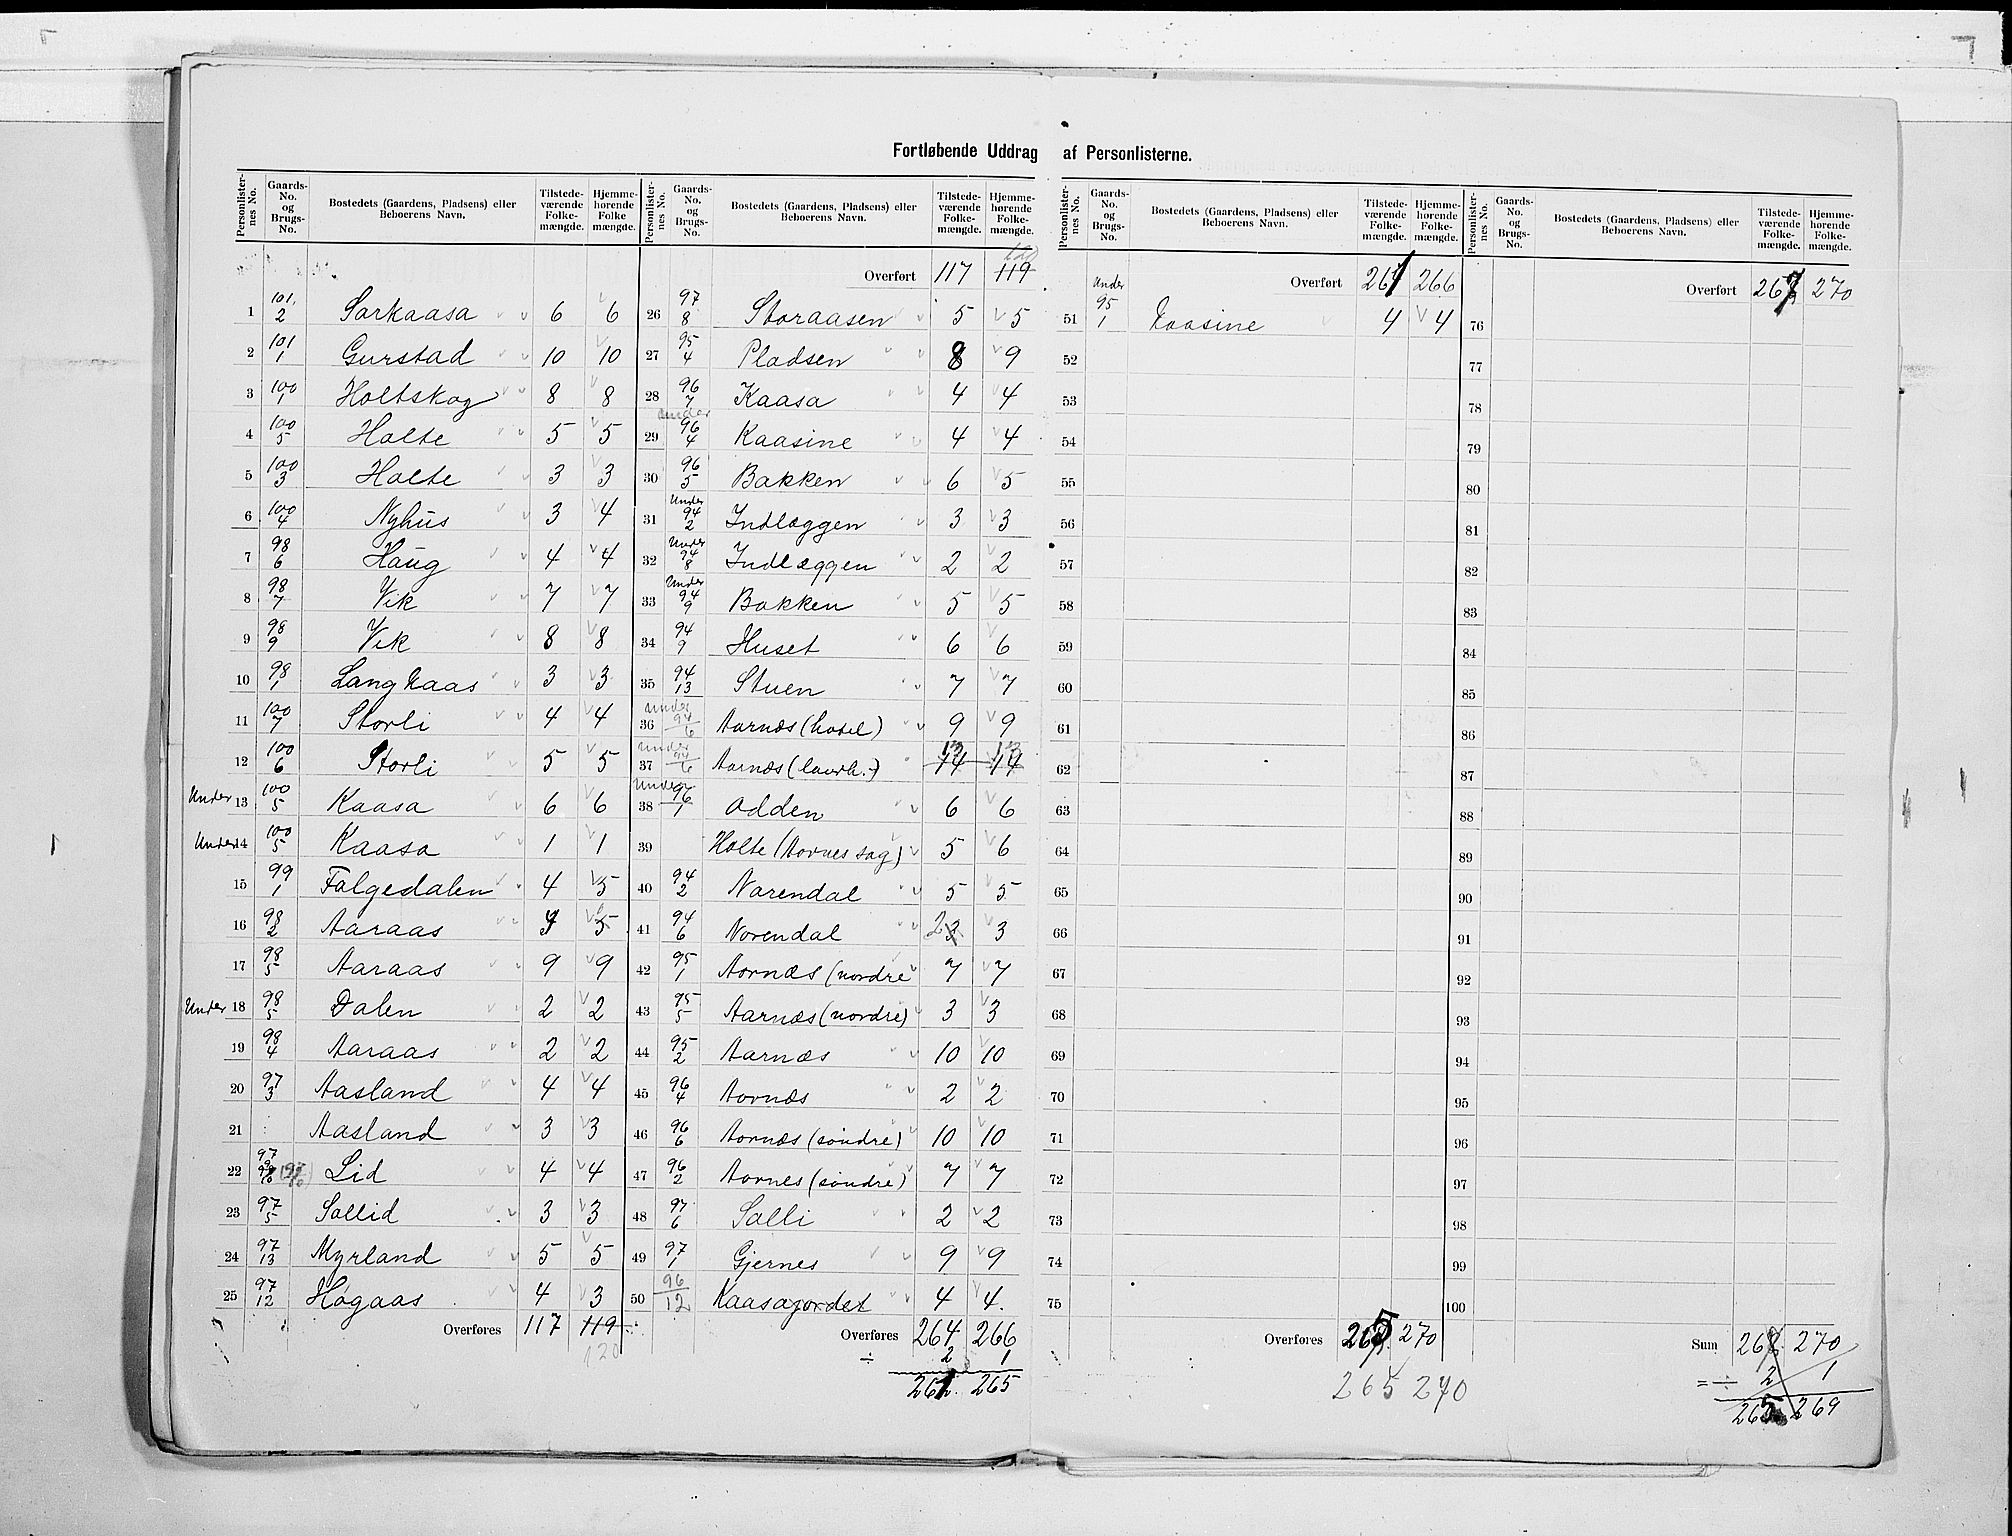 Fortløbende Uddrag af Personlisterne.
Personlisternes No. Gaards-No. og Brugs-No. Bostedets (Gaardens, Pladsens) eller Beboerens Navn. Tilstedeværende Folkemængde. Hjemmehørende Folkemængde.
1 101, 2 Sarkaasa 6 6
2 101 1 Gurstad 10 10
3 100 1 Holtskog 8 8
4 100 5 Holte 5 5
5 100 3 Holte 3 3
6 100 4 Nyhus 3 4
7 98 6 Haug 4 4
8 98 7 Vik 7 7
9 98 9 Vik 8 8
10 98 1 Langkaas 3 3
11 100 7 Storli 4 4
12 100 6 Storli 5 5
Under 13 100 5 Kaasa 6 6
Under 14 100 5 Kaasa 1 1
15 99 1 Falgedalen 4 5
16 98 2 Aaraas 5
17 98 5 Aaraas 9 9
Under 18 98 5 Dalen 2 2
19 98 4 Aaraas 2 2
20 97 3 Aasland 4 4
21 Aasland 3 3
22 97 Lid 4 4
23 97 5 Sallid 3 3
24 97 13 Myrland 5 5
25 97 12 Høgaas 4 3
Overføres 117 119
120
Personlisternes No. Gaards-No. og Brugs-No. Bostedets (Gaardens, Pladsens) eller Beboerens Navn. Tilstedeværende Folkemængde. Hjemmehørende Folkemængde.
120
Overført 117 119
26 97 8 Storaasen 5 5
27 95 4 Pladsen 8 9
28 96 7 Kaasa 4 4
29 under 96 4 Kaasine 4 4
30 96 5 Bakken 6 5
31 Under 94 2 Indlæggen 3 3
32 Under 94 8 Indlæggen 2 2
33 Under 94 9 Bakken 5 5
34 94 9 Huset 6 6
35 94 13 Stuen 7 7
36 under 94 6 Aarnæs (hotel) 9 9
37 under 94 6 Aarnæs 14 14
38 Under 96 1 Odden 6 6
39 Holte (Aarnes sag) 5 6
40 94 2 Narendal 5 5
41 94 6 Norendal 2 3 3
42 95 1 Aarnæs (nordre 7 7
43 95 5 Aarnæs (nordre) 3 3
44 95 2 Aarnæs 10 10
45 96 4 Aarnæs 2 2
46 96 6 Aarnæs (søndre) 10 10
47 96 2 Aarnes (søndre) 7 7
48 97 6 Salli 2 2
49 97 1 Gjernes 9 9
50 96 12 Kaasajordet 4 4.
Overføres 264 266
÷ 2 1
261. 265
Personlisternes No. Gaards-No. og Brugs-No. Bostedets (Gaardens, Pladsens) eller Beboerens Navn. Tilstedeværende Folkemængde. Hjemmehørende Folkemængde.
Overført 261 266
51 Under 95 1 Kaasine 4 4
52
53
54
55
56
57
58
59
60
61
62
63
64
65
66
67
68
69
70
71
72
73
74
75
Overføres 265 270
265 270
Personlisternes No. Gaards-No. og Brugs-No. Bostedets (Gaardens, Pladsens) eller Beboerens Navn. Tilstedeværende Folkemængde. Hjemmehørende Folkemængde.
Overført 270
76
77
78
79
80
81
82
83
84
85
86
87
88
89
90
91
92
93
94
95
96
97
98
99
100
Sum 268 270
= ÷ 2 1
265 269